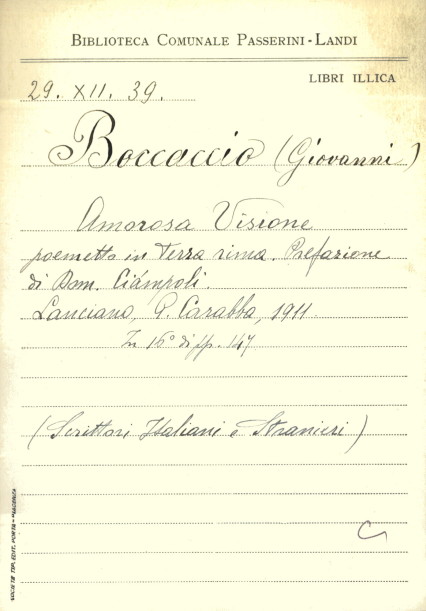 BIBLIOTECA COMUNALE PASSERINI-LANDI
LIBRI ILLICA
29. XII. 39.
Boccaccio (Giovanni)
Amorosa Visione
poemetto in terza rima. Prefazione
di Dom. Ciámpoli.
Lanciano, G. Carabba, 1911.
In 16° di pp. 147
(Scrittori Italiani e Stranieri)
C
PORTA - PIACENZA